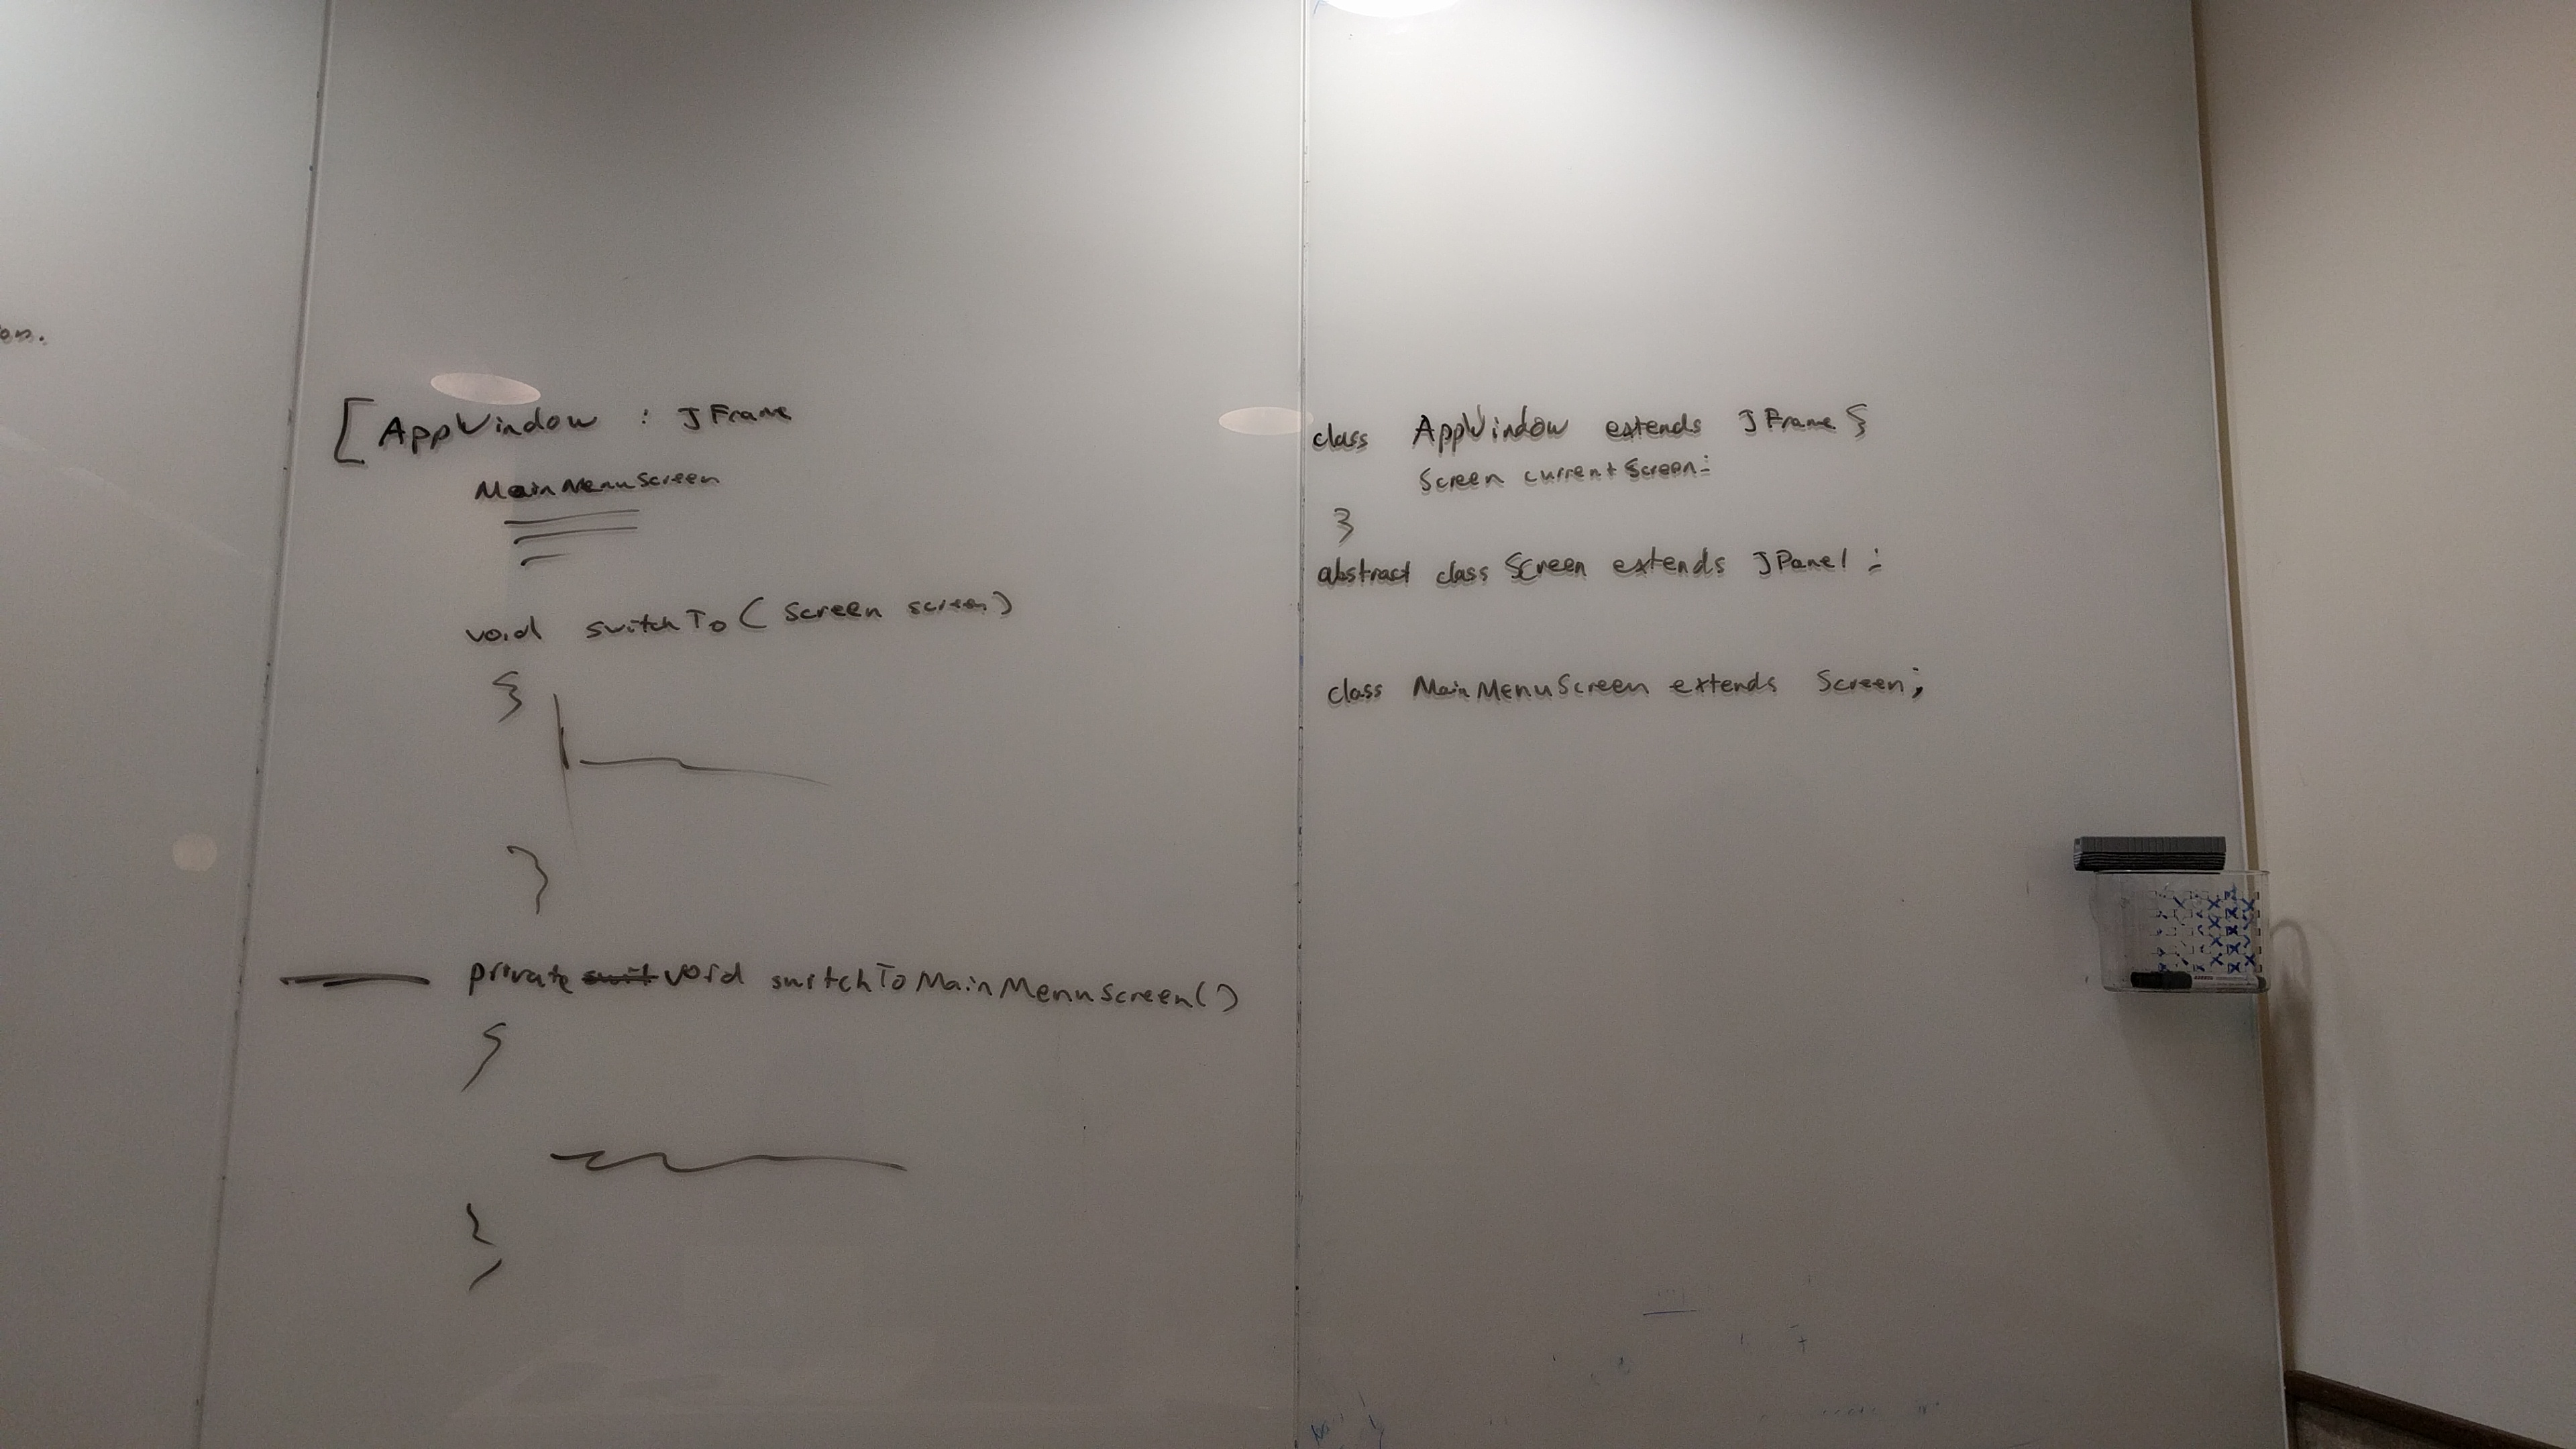 [AppWindow : JFrame
MainMenuScreen
void switchTo(Screen screen)
{
}
private suit void switchToMainMenuScreen()
{
}
class AppWindow extends JFrame {
Screen currentScreen;
}
abstract class Screen extends JPanel ;
class MainMenuScreen extends Screen;